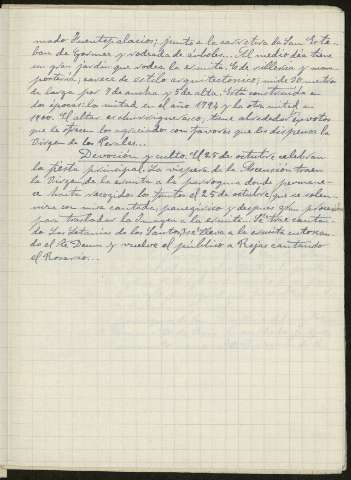 mado Fuentepalacios; junto a la carretera de San Este-
ban de Gormaz y rodeada de árboles... Al medio día tiene
un gran jardín que rodea la ermita. Es de sillería y mam-
postería; carece de estilo arquitectónico; mide 30 metros
de larga por 9 de ancha y 5 de alta. Está construida en
dos épocas: la mitad en el año 1794 y la otra mitad en
1900. El altar es churrigueresco; tiene alrededor exvotos
que le ofrecen los agraciados con favores que les dispensa la
Virgen de los Rosales...
Devoción y culto. El 25 de octubre celebran
la fiesta principal. La víspera de la Ascensión traen
la Virgen de la ermita a la parroquia donde permane-
ce hasta recogidos los frutos el 25 de octubre, que se solem-
niza con misa cantada, panegírico y después gran procesión
para trasladar la Imagen a la ermita. Se trae cantan-
do Las Letanías de los Santos; se lleva a la ermita entonan-
do el Te Deum y vuelve el público a Rejas cantando
el Rosario...